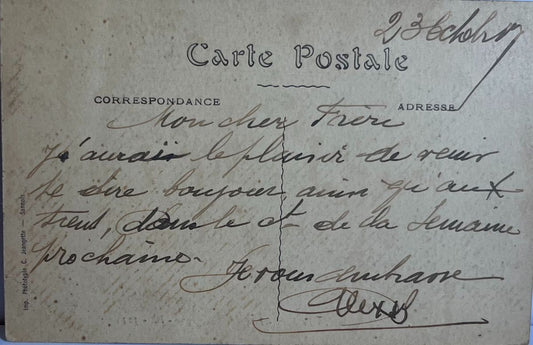 23 Octobre 17
Carte Postale
CORRESPONDANCE
ADRESSE
Mon cher Frère
J'aurais le plaisir de venir
te dire bonjour ainsi qu'aux
dans le ct de la semaine
prochaine.
Je vous embrasse
Imp. Phototypie C. Jeangette